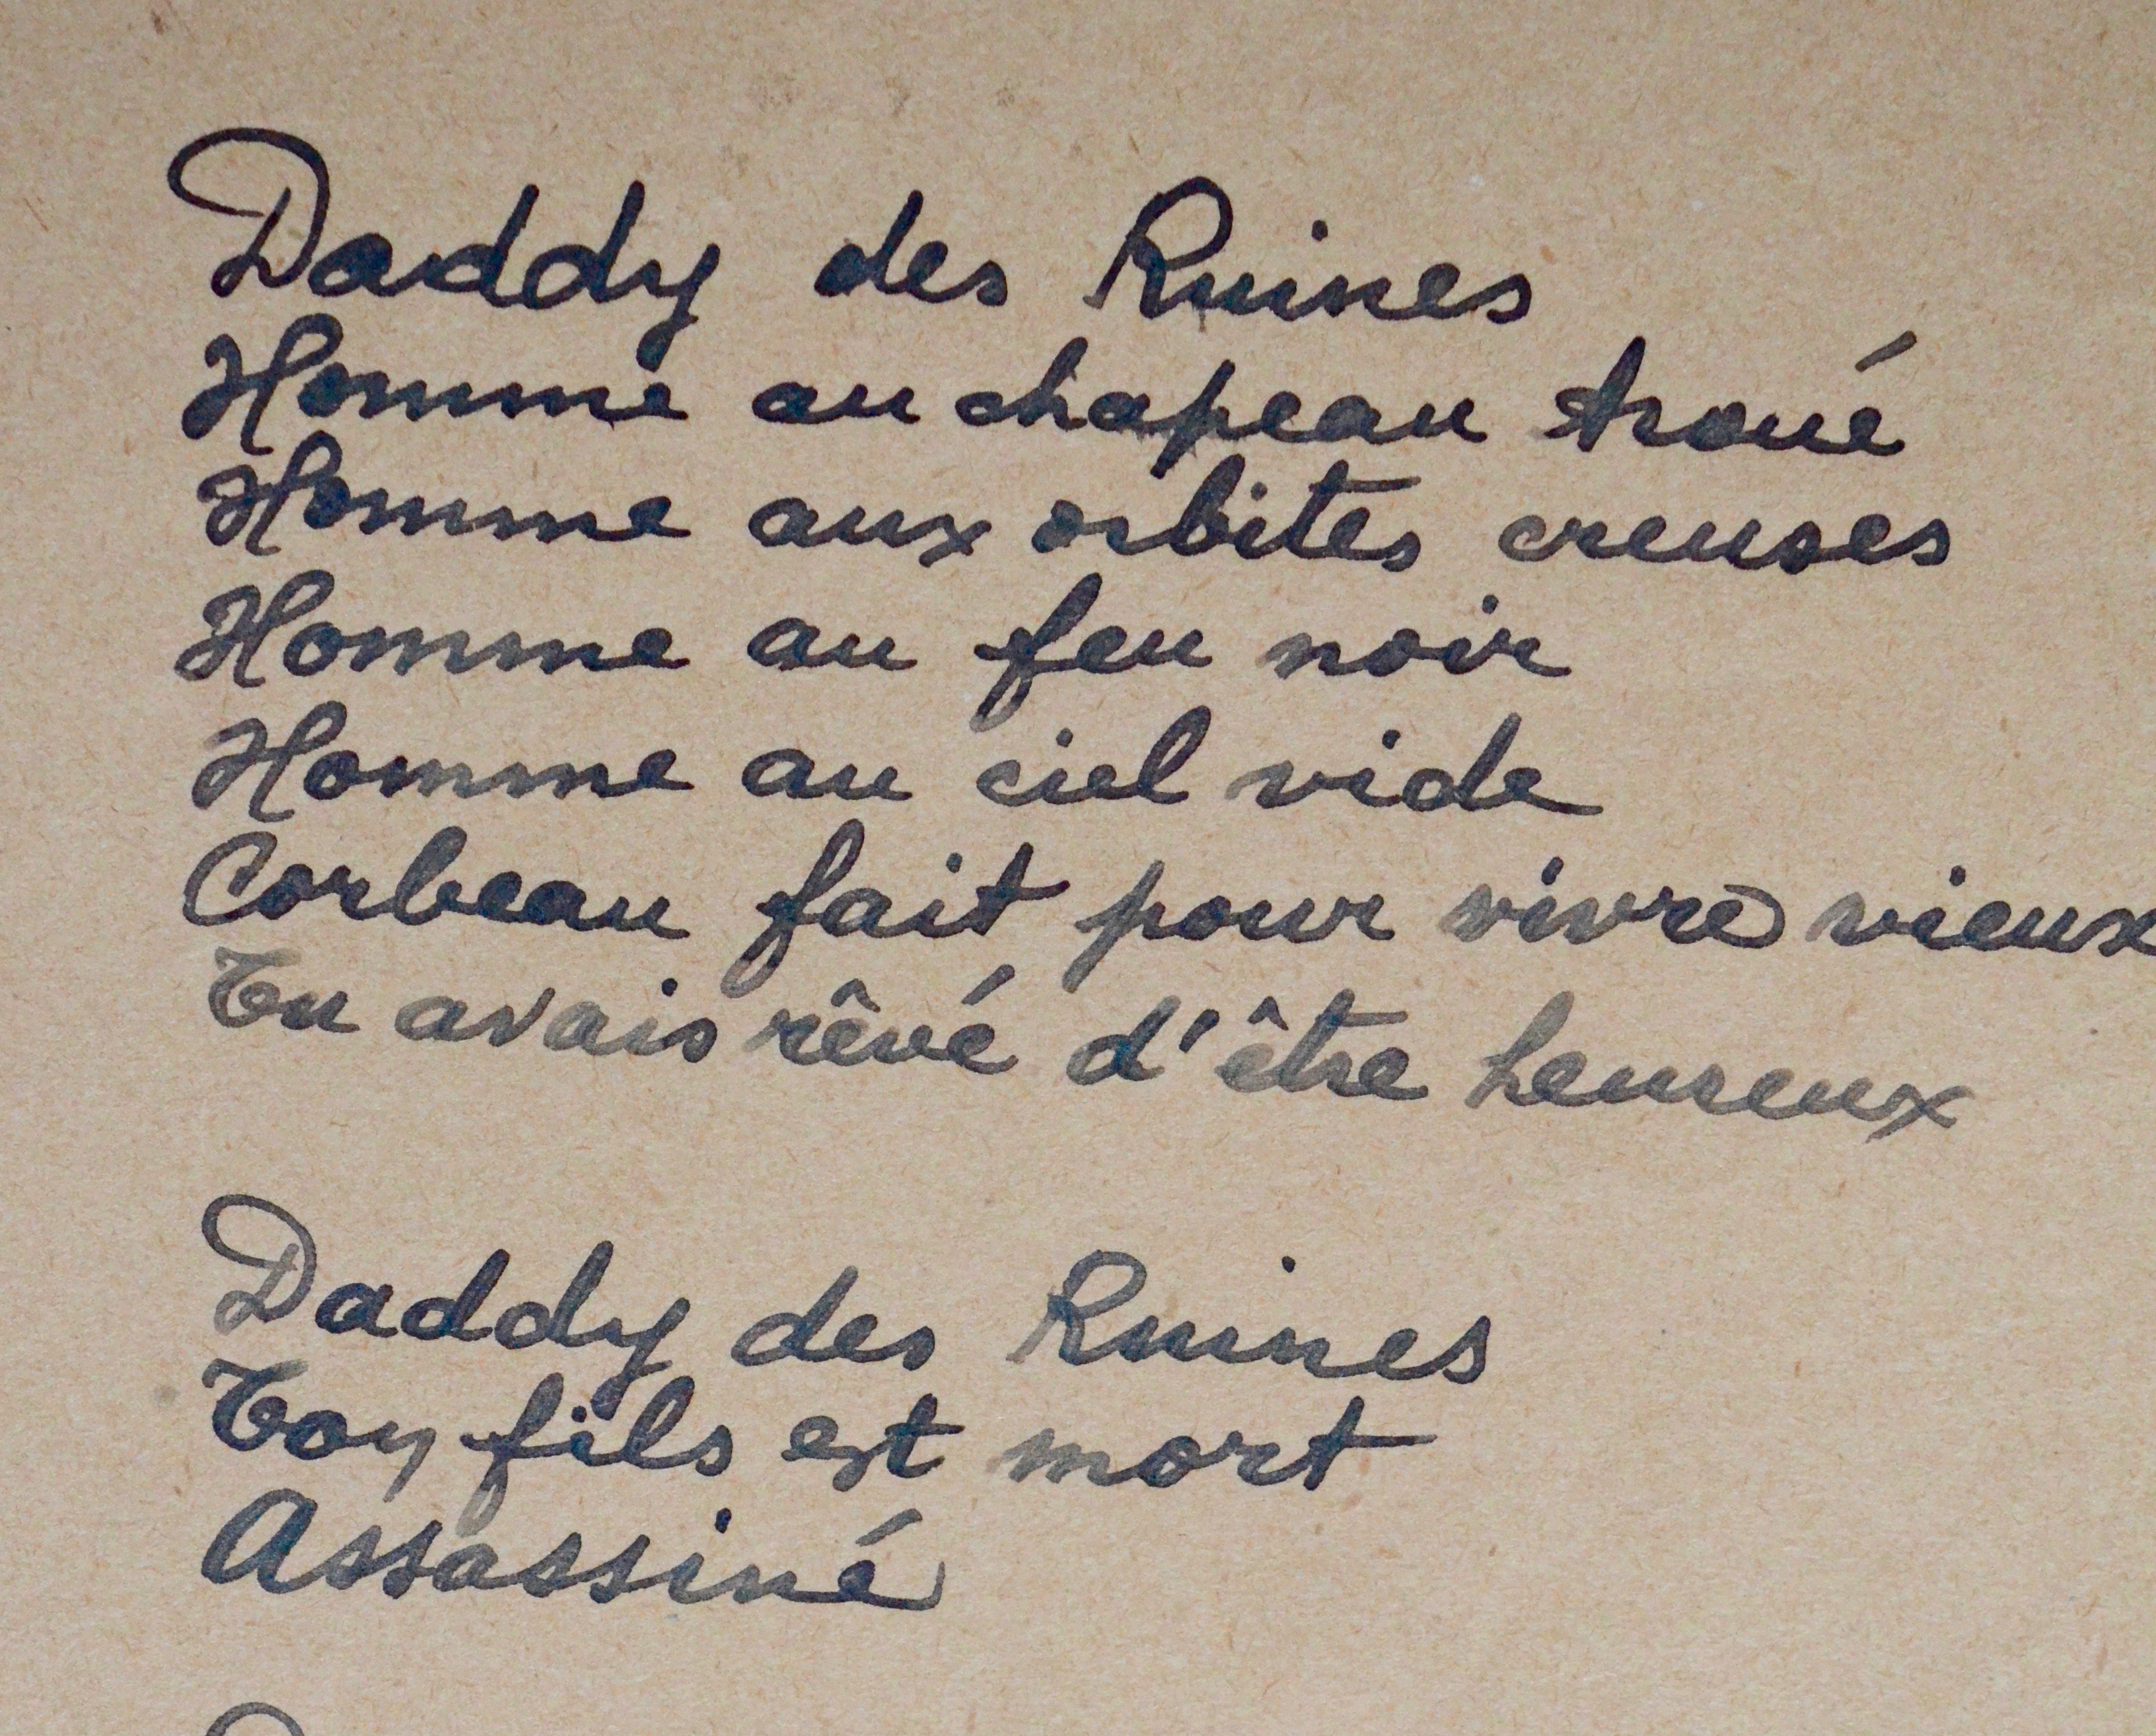 Daddy des Ruines
Homme au chapeau troué
Homme aux orbites creuses
Homme au feu noir
Homme au ciel vide
Corbeau fait pour vivre vieux
Tu avais rêvé d'être heureux
Daddy des Ruines
Ton fils est mort
Assassiné